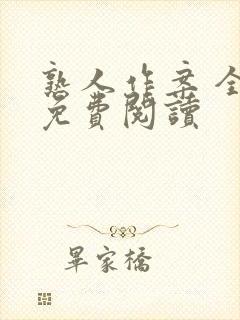 熟人作案全
免費閱讀
畢家橋